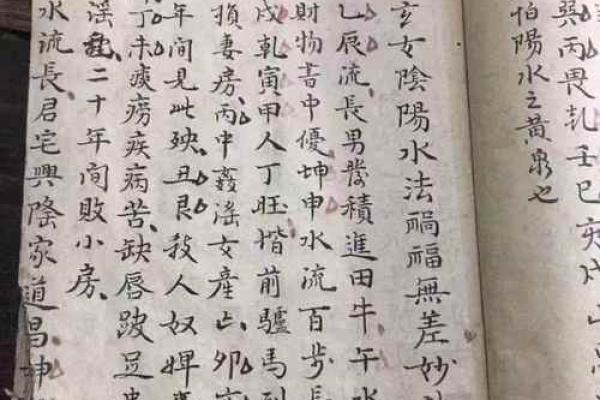 巽丙畏乾壬巳亥
怕陽水之黃泉也
玄女陰陽水法禍福無差妙
乙辰流長男發積進田牛午水
財物書中優坤申水流百步長
戌乾寅甲人丁旺揩前驢馬到
損妻房丙中姦淫女產亡卯
年間見此殃丑艮殺人奴婢
丁未痰癆疾病苦缺唇跛足
淫亂二十年間敗小房
水流長君宅興隆家道昌坤